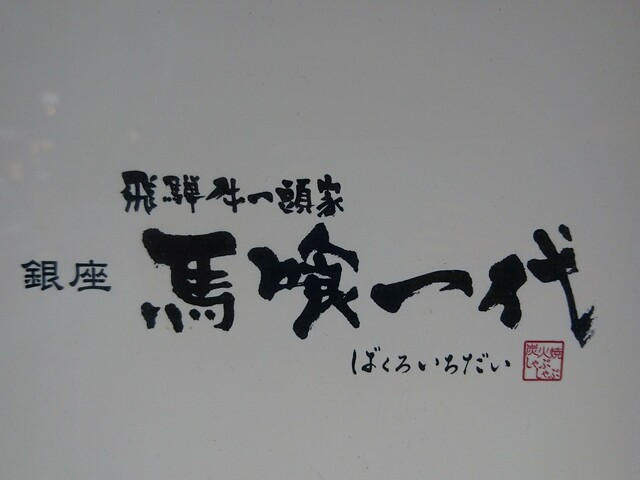 飛騨牛一頭家
銀座
馬喰一代
ばくろいちだい
炭火焼
しゃぶしゃぶ